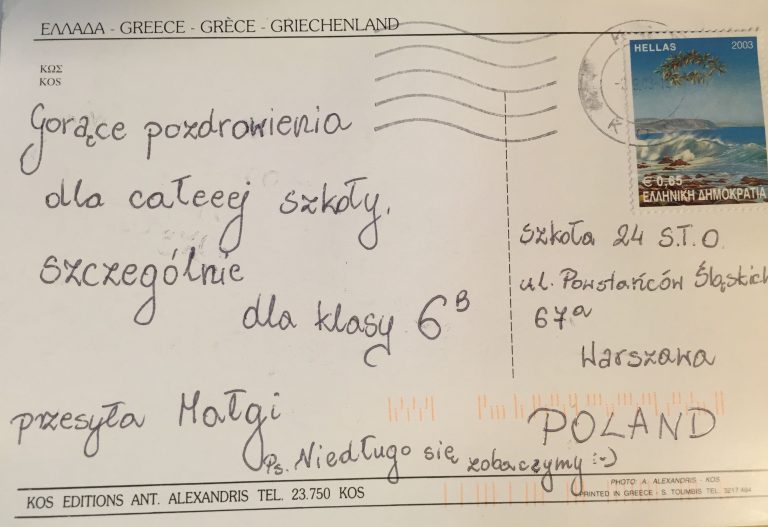 ΕΛΛΑΔΑ - GREECE - GRÈCE - GRIECHENLAND
ΚΩΣ
KOS
Gorące pozdrowienia
dla całeeej szkoły,
szczególnie
dla klasy 6B
przesyła Małgi
Ps. Niedługo się zobaczymy :-)
HELLAS 2003
€ 0,65
ΕΛΛΗΝΙΚΗ ΔΗΜΟΚΡΑΤΙΑ
Szkoła 24 S.T.O.
ul. Powstańców Śląskich
67a
Warszawa
POLAND
KOS EDITIONS ANT. ALEXANDRIS TEL. 23.750 KOS
PHOTO A. ALEXANDRIS - KOS
PRINTED IN GREECE - S. TOUMBIS TEL. 3217 464